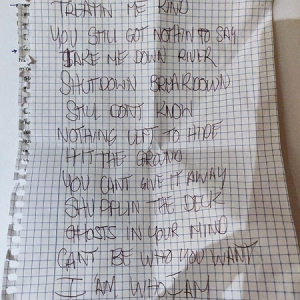 TREATIN ME KIND
YOU STILL GOT NOTHIN TO SAY
TAKE ME DOWN RIVER
SHUTDOWN BREAKDOWN
STILL DONT KNOW
NOTHING LEFT TO HIDE
HIT THE GROUND
YOU CANT GIVE IT AWAY
SHUFFLIN THE DECK
GHOSTS IN YOUR MIND
CANT BE WHO YOU WANT
I AM WHO I AM